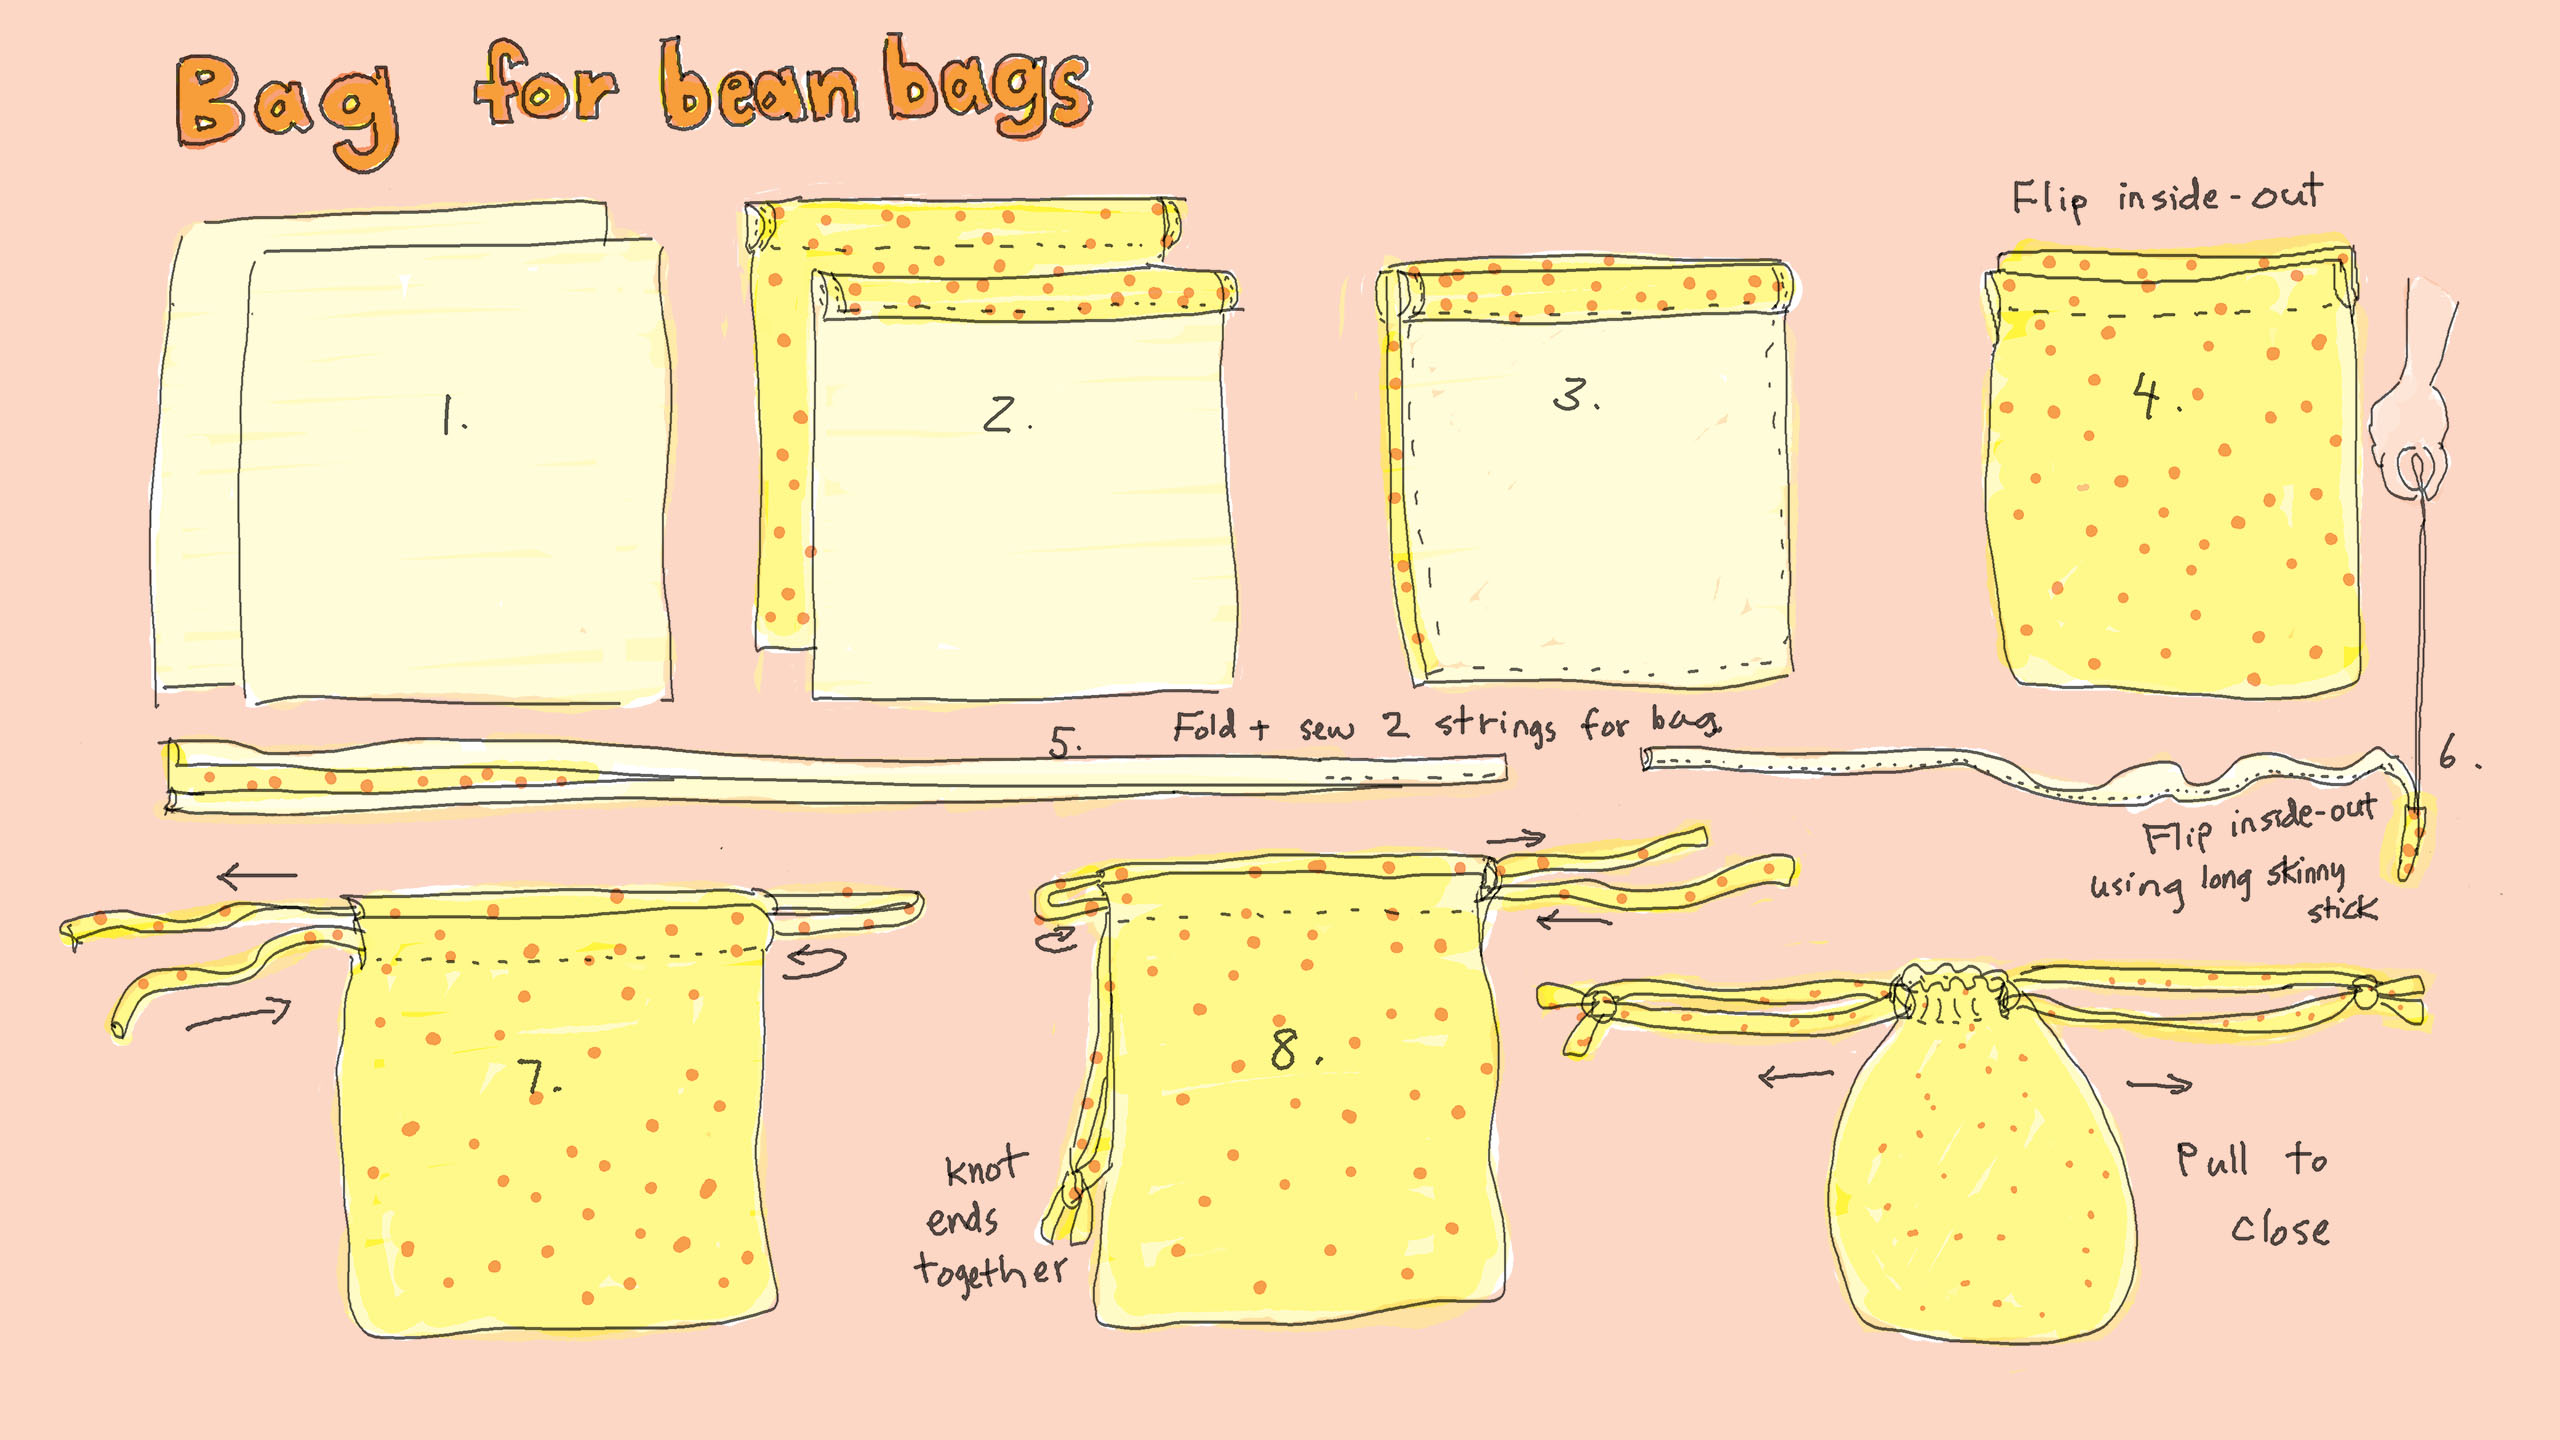 Bag for bean bags
1.
2.
3.
Flip inside-out
4.
5.
Fold + sew 2 strings for bag
6.
Flip inside-out
using long skinny
stick
7.
8.
knot
ends
together
Pull to
close